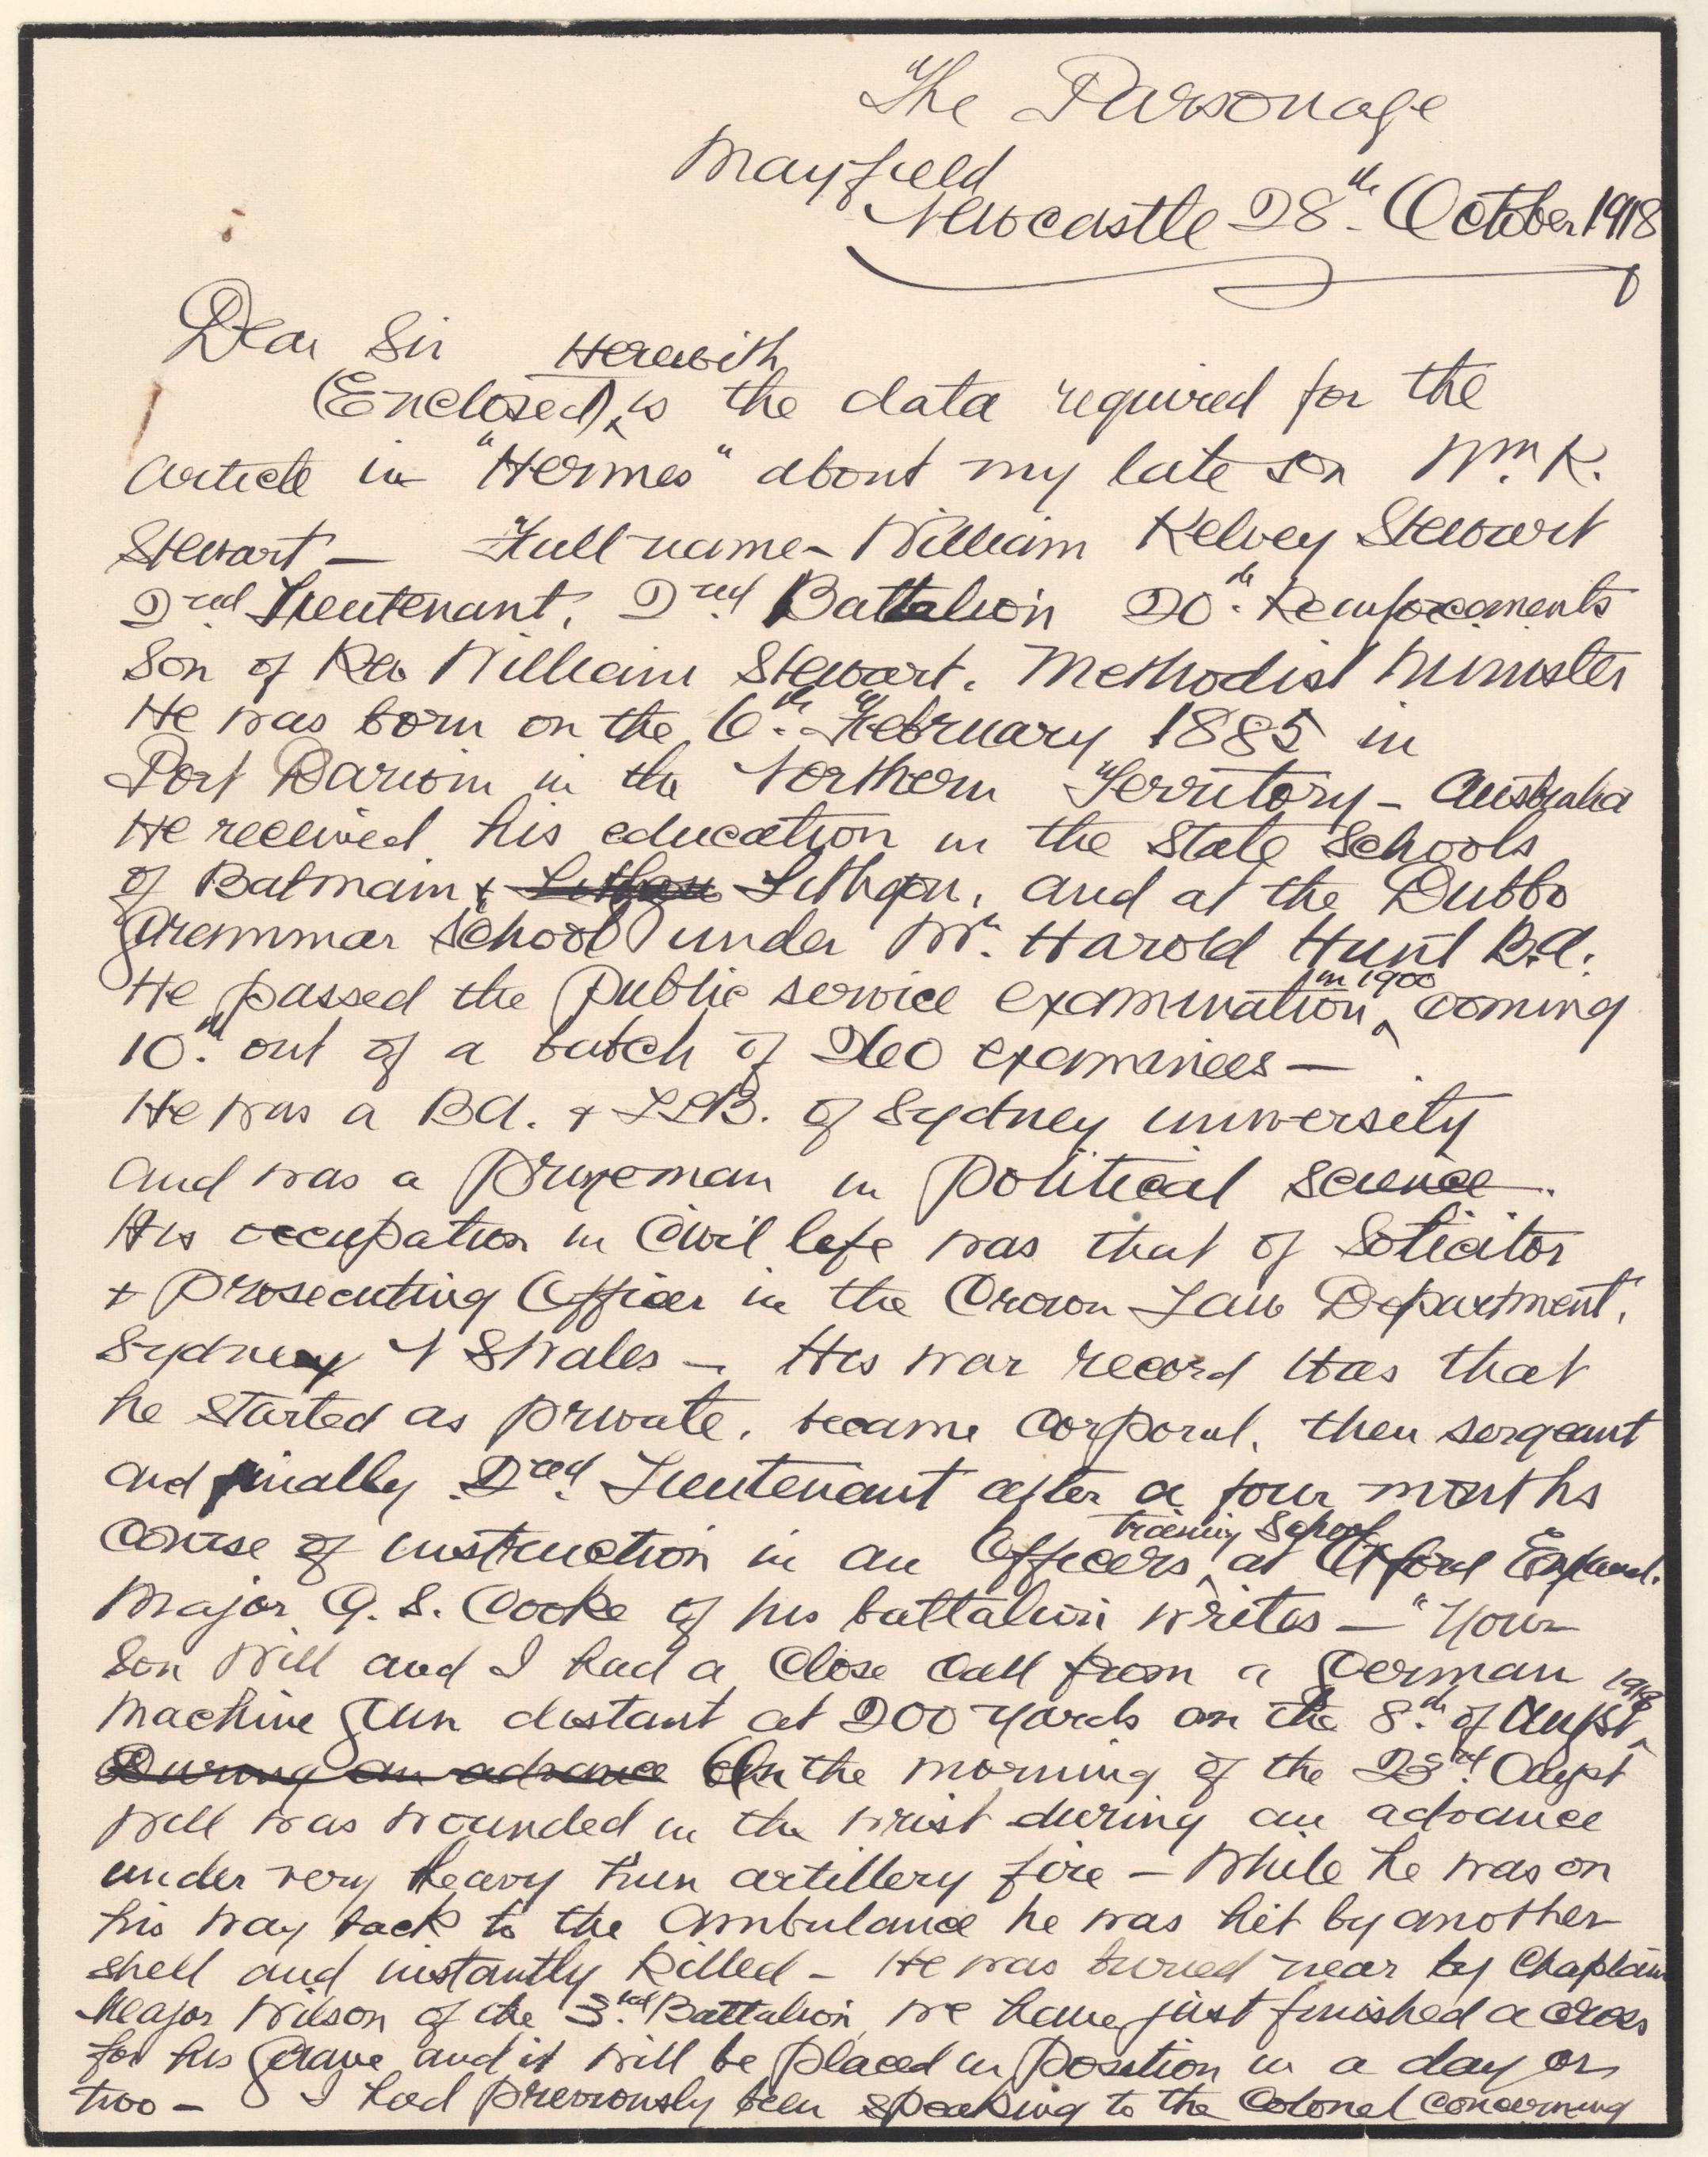 The Parsonage
Mayfield
Newcastle 28th. October 1918
Dear Sir Herewith
(Enclosed) is the data required for the
article in "Hermes" about my late son Wm. K.
Stewart — Full name - William Kelvey Stewart
2nd Lieutenant, 2nd Battalion 20th. Reinforcements
Son of Rev William Stewart. Methodist Minister
He was born on the 6th. February 1885 in
Port Darwin in the Northern Territory - Australia
He received his education in the State Schools
of Balmain & Lithgow, and at the Dubbo
Grammar School under Mr. Harold Hunt B.A.
He passed the Public service examination in 1900 coming
10th. out of a batch of 260 examinees —
He was a BA. & LLB. of Sydney University
and was a prizeman in Political Science.
His occupation in Civil life was that of Solicitor
& Prosecuting Officer in the Crown Law Department,
Sydney N S Wales — His war record was that
he started as private, became Corporal, then sergeant
and finally 2nd. Lieutenant after a four months
course of instruction in an Officers training School at Oxford England.
Major G. S. Cooke of his battalion writes — "Your
Son Will and I had a close call from a German
machine gun distant at 200 yards on the 8th. of August 1918
During an advance On the morning of the 23rd. August
Will was wounded in the wrist during an advance
under very heavy hun artillery fire — While he was on
his way back to the ambulance he was hit by another
shell and instantly killed — He was buried near by Chaplain
Major Wilson of the 3rd Battalion, we have just finished a cross
for his grave and it will be placed in position in a day or
two — I had previously been speaking to the Colonel concerning